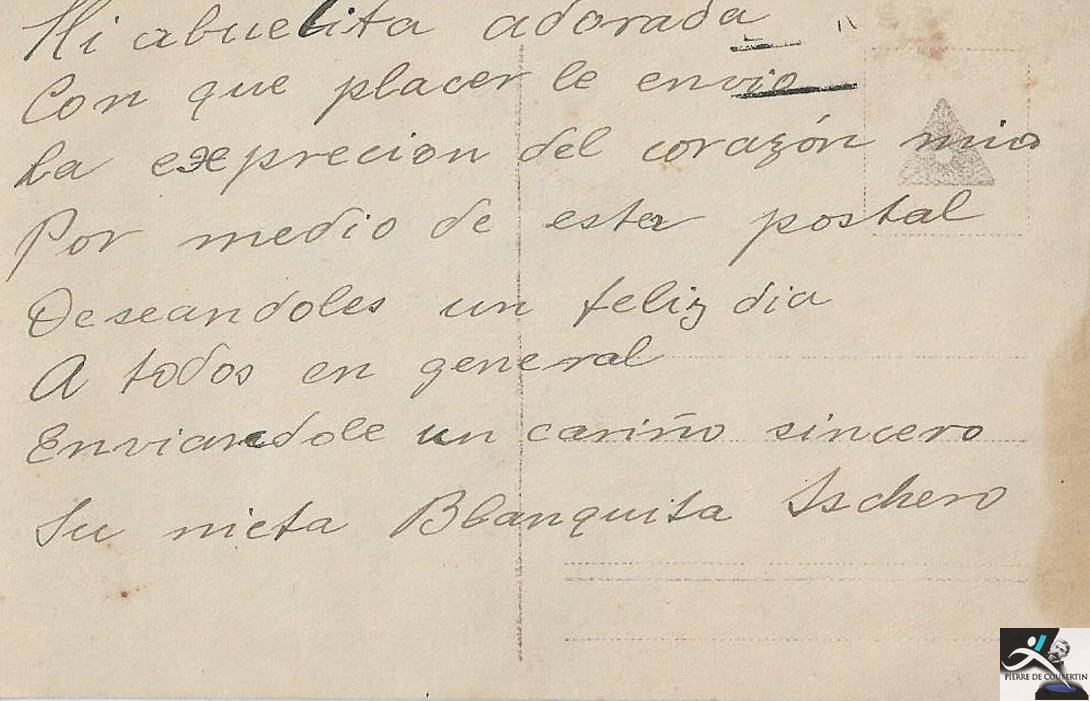 Mi abuelita adorada
Con que placer le envio
La exprecion del corazón mio
Por medio de esta postal
Deseandoles un feliz dia
A todos en general
Enviandole un cariño sincero
Su nieta Blanquita Ischero
PIERRE DE COUBERTIN